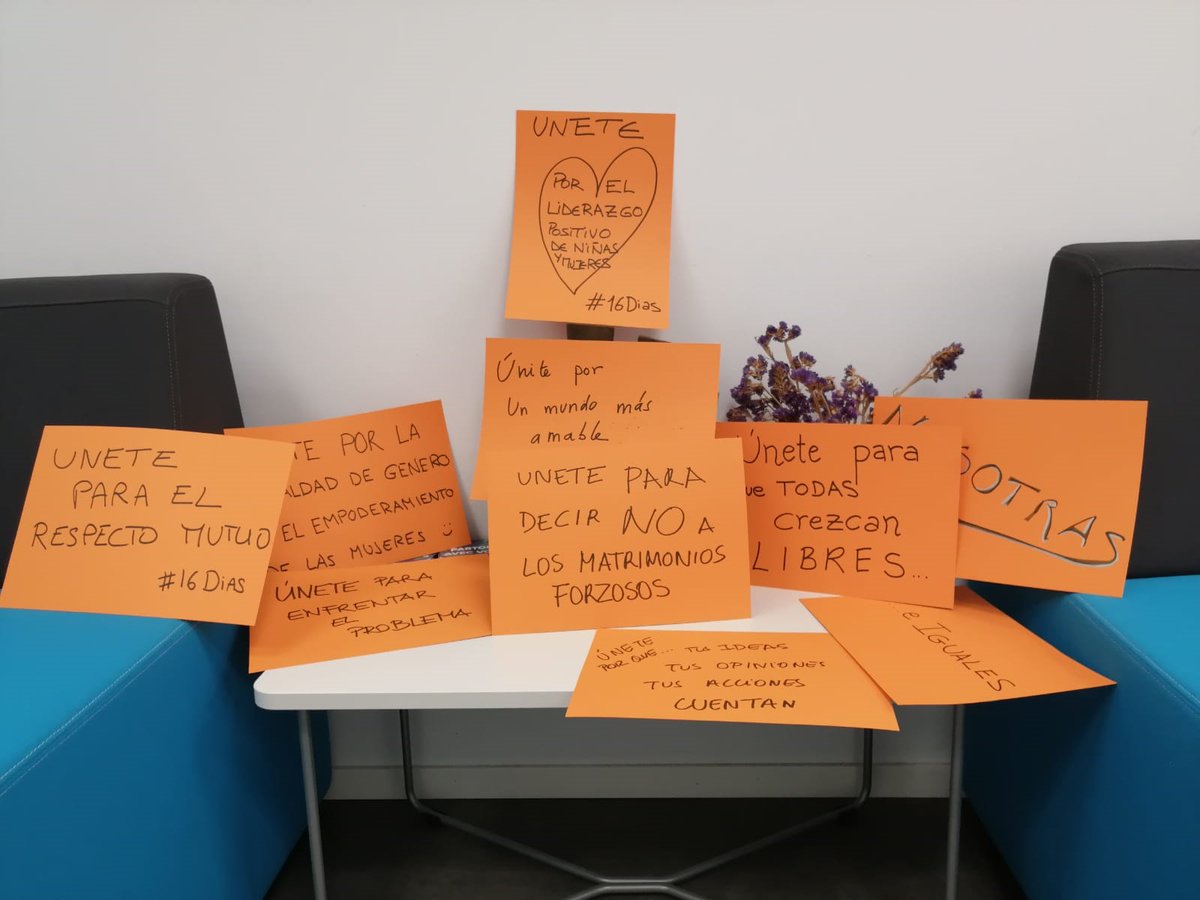 UNETE
POR EL
LIDERAZGO
POSITIVO
DE NIÑAS
Y MUJERES
#16Dias
Únite por
Un mundo más
amable
UNETE
PARA EL
RESPECTO MUTUO
#16Dias
TE POR LA
ALDAD DE GENERO
EL EMPODERAMIENTO
DE LAS MUJERES
ÚNETE PARA
ENFRENTAR
EL
PROBLEMA
UNETE PARA
DECIR NO A
LOS MATRIMONIOS
FORZOSOS
Únete para
que TODAS
crezcan
LIBRES...
NOSOTRAS
ÚNETE
POR QUE... TUS IDEAS
TUS OPINIONES
TUS ACCIONES
CUENTAN
e IGUALES